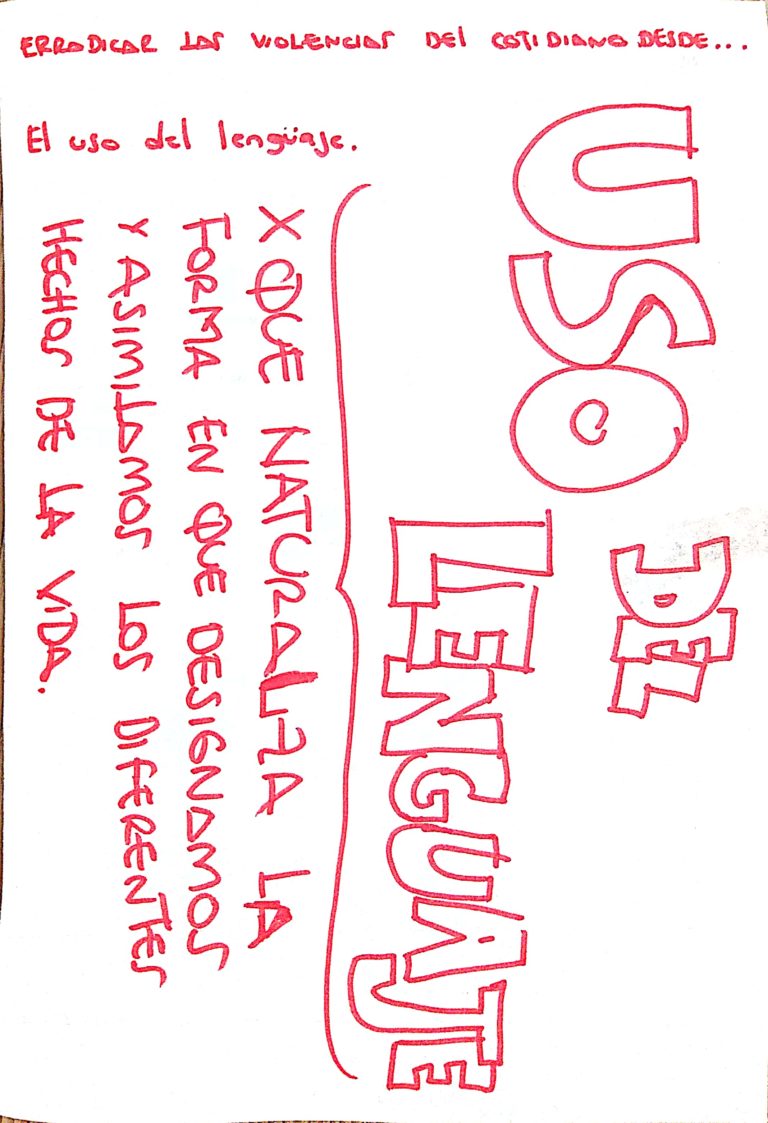 ERRADICAR LAS VIOLENCIAS DEL COTIDIANO DESDE...
El uso del lengüaje.
USO
DEL
LENGUAJE
X QUE NATURALIZA LA
FORMA EN QUE DESIGNAMOS
Y ASIMILAMOS LOS DIFERENTES
HECHOS DE LA VIDA.